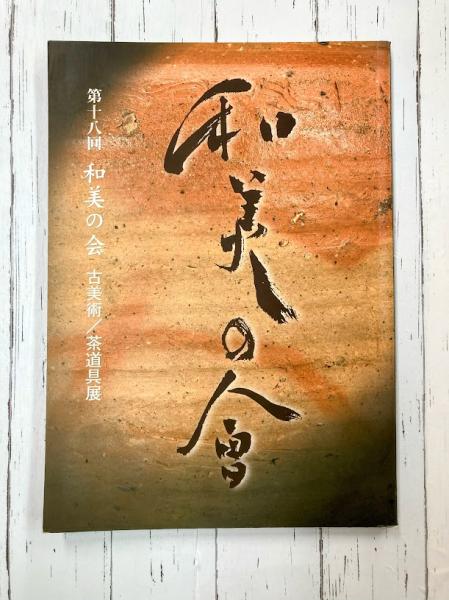 和美の會
第十八回 和美の会 古美術／茶道具展